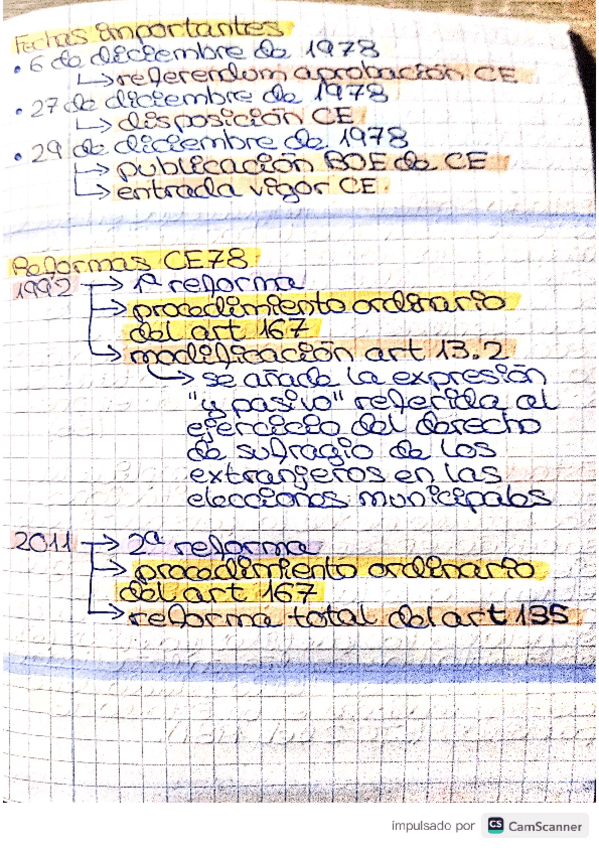 Fechas importantes
• 6 de diciembre de 1978
↳ referendum aprobación CE
• 27 de diciembre de 1978
↳ disposición CE
• 29 de diciembre de 1978
↳ publicación BOE de CE
↳ entrada vigor CE.
Reformas CE78
1992 → 1ª reforma
→ procedimiento ordinario
del art 167
→ modificación art 13.2
↳ se añade la expresión
"y pasivo" referida al
ejercicio del derecho
de sufragio de los
extranjeros en las
elecciones municipales
2011 → 2ª reforma
→ procedimiento ordinario
del art 167
→ reforma total del art 135
impulsado por CS CamScanner